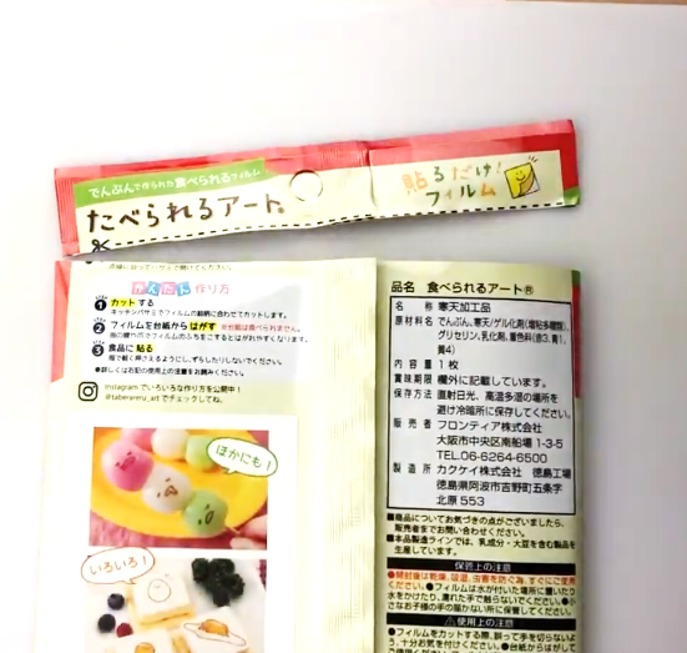 でんぷんで作られた食べられるフィルム
たべられるアート®
貼るだけ!
フィルム
かんたん 作り方
1 カットする
キッチンバサミでフィルムの絵柄に合わせてカットします。
2 フィルムを台紙からはがす ※台紙は食べられません。
指の腹や爪でフィルムのふちをこするとはがれやすくなります。
3 食品に貼る
指で軽く押さえるようにし、ずらしたりしないでください。
●詳しくは右記の使用上の注意をお読みください。
Instagramでいろいろな作り方を公開中!
@taberareru_artでチェックしてね。
ほかにも!
いろいろ!
品名 食べられるアート®
名称 寒天加工品
原材料名 でんぷん、寒天/ゲル化剤(増粘多糖類)、
グリセリン、乳化剤、着色料(赤3、青1、
黄4)
内容量 1枚
賞味期限 欄外に記載しています。
保存方法 直射日光、高温多湿の場所を
避け冷暗所に保存してください。
販売者 フロンティア株式会社
大阪市中央区南船場 1-3-5
TEL.06-6264-6500
製造所 カクケイ株式会社 徳島工場
徳島県阿波市吉野町五条字
北原 553
■商品についてお気づきの点がございましたら、
販売者までお問い合わせください。
■本品製造ラインでは、乳成分・大豆を含む製品を
生産しています。
保管上の注意
●開封後は乾燥、吸湿、虫害を防ぐ為、すぐにご使用
ください。●フィルムは水が付いた場所に置いたり
水をかけたり、濡れた手で触らないでください。●小
さなお子様の手の届かない所に保管してください。
⚠使用上の注意
●フィルムをカットする際、誤って手を切らないよ
う、十分お気を付けください。●台紙からはがして